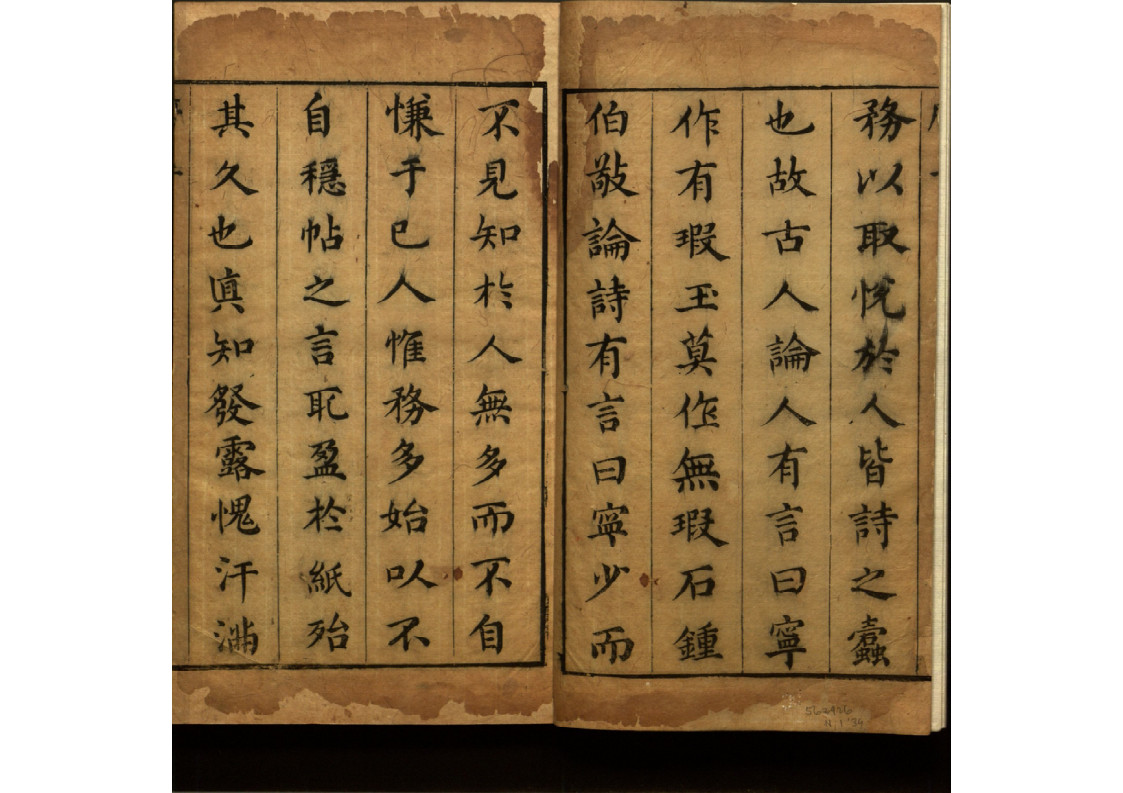 務以取悅於人皆詩之蠹
也故古人論人有言曰寧
作有瑕玉莫作無瑕石鍾
伯敬論詩有言曰寧少而
不見知於人無多而不自
慊于已人惟務多始以不
自穩帖之言耴盈於紙殆
其久也眞知發露愧汗滿
562426